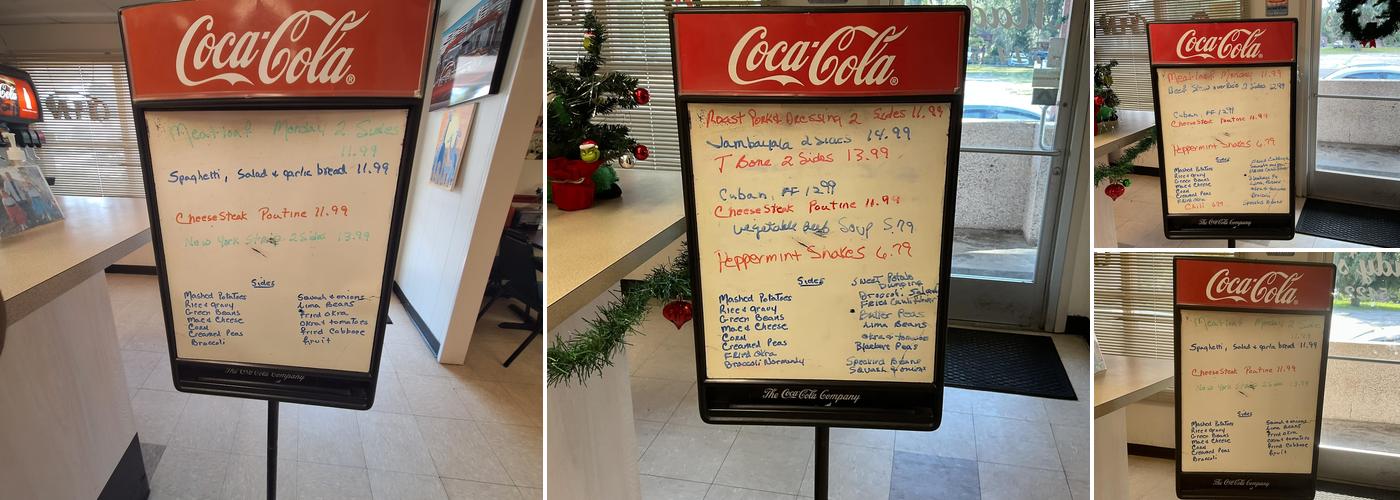 Coca-Cola
Meatloaf Monday 2 Sides
11.99
Spaghetti, Salad & garlic bread 11.99
CheeseSteak Poutine 11.99
New York Strip 2 Sides 13.99
Sides
Mashed Potatoes
Rice & gravy
Green Beans
Mac & Cheese
Corn
Creamed Peas
Broccoli
Squash & onions
Lima Beans
Fried okra
okra & tomatoes
fried Cabbage
fruit
The Coca-Cola Company
Coca-Cola
Roast Pork & Dressing 2 Sides 11.99
Jambalaya 2 Sides 14.99
T Bone 2 Sides 13.99
Cuban, FF 12.99
CheeseSteak Poutine 11.99
vegetable beef Soup 5.79
Peppermint Shakes 6.79
Sides
Mashed Potatoes
Rice & gravy
Green Beans
Mac & Cheese
Corn
Creamed Peas
Fried Okra
Broccoli Normandy
Sweet Potato
Broccoli Salad
Butter Peas
Lima Beans
okra & tomatoes
Blackeye Peas
Squash & onions
The Coca-Cola Company
Coca-Cola
Meatloaf Monday 11.99
Beef Stew over Rice 2 Sides 12.99
Cuban, FF 12.99
CheeseSteak Poutine 11.99
Peppermint Shakes 6.79
Sides
Mashed Potatoes
Rice & gravy
Green Beans
Mac & Cheese
Corn
Creamed Peas
Fried Okra
Chili
Lima Beans
okra & tomatoes
The Coca-Cola Company
Coca-Cola
Meatloaf Monday 2 Sides
11.99
Spaghetti, Salad & garlic bread 11.99
CheeseSteak Poutine 11.99
New York Strip 2 Sides 13.99
Sides
Mashed Potatoes
Rice & gravy
Green Beans
Mac & Cheese
Corn
Creamed Peas
Broccoli
Squash & onions
Lima Beans
Fried okra
okra & tomatoes
fried Cabbage
fruit
The Coca-Cola Company